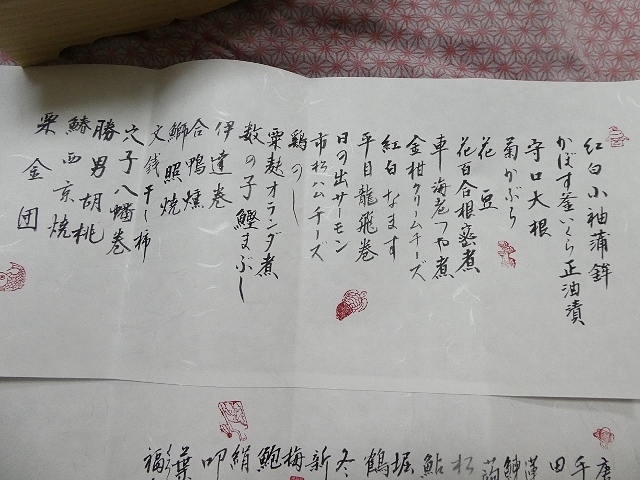 紅白小袖蒲鉾
かぼす釜いくら正油漬
守口大根
菊かぶら
花豆
花百合根蜜煮
車海老つや煮
金柑クリームチーズ
紅白なます
平目龍飛巻
日の出サーモン
市松ハムチーズ
鶏のし
粟麩オランダ煮
数の子鰹まぶし
伊達巻
合鴨燻
鰤照焼
文銭干し柿
穴子八幡巻
勝男胡桃
鰆西京焼
栗金団
唐
手
田
蓮
鰊
蒟
松
鮎
堀
鶴
冬
新
梅
鮑
絹
叩
葉
福